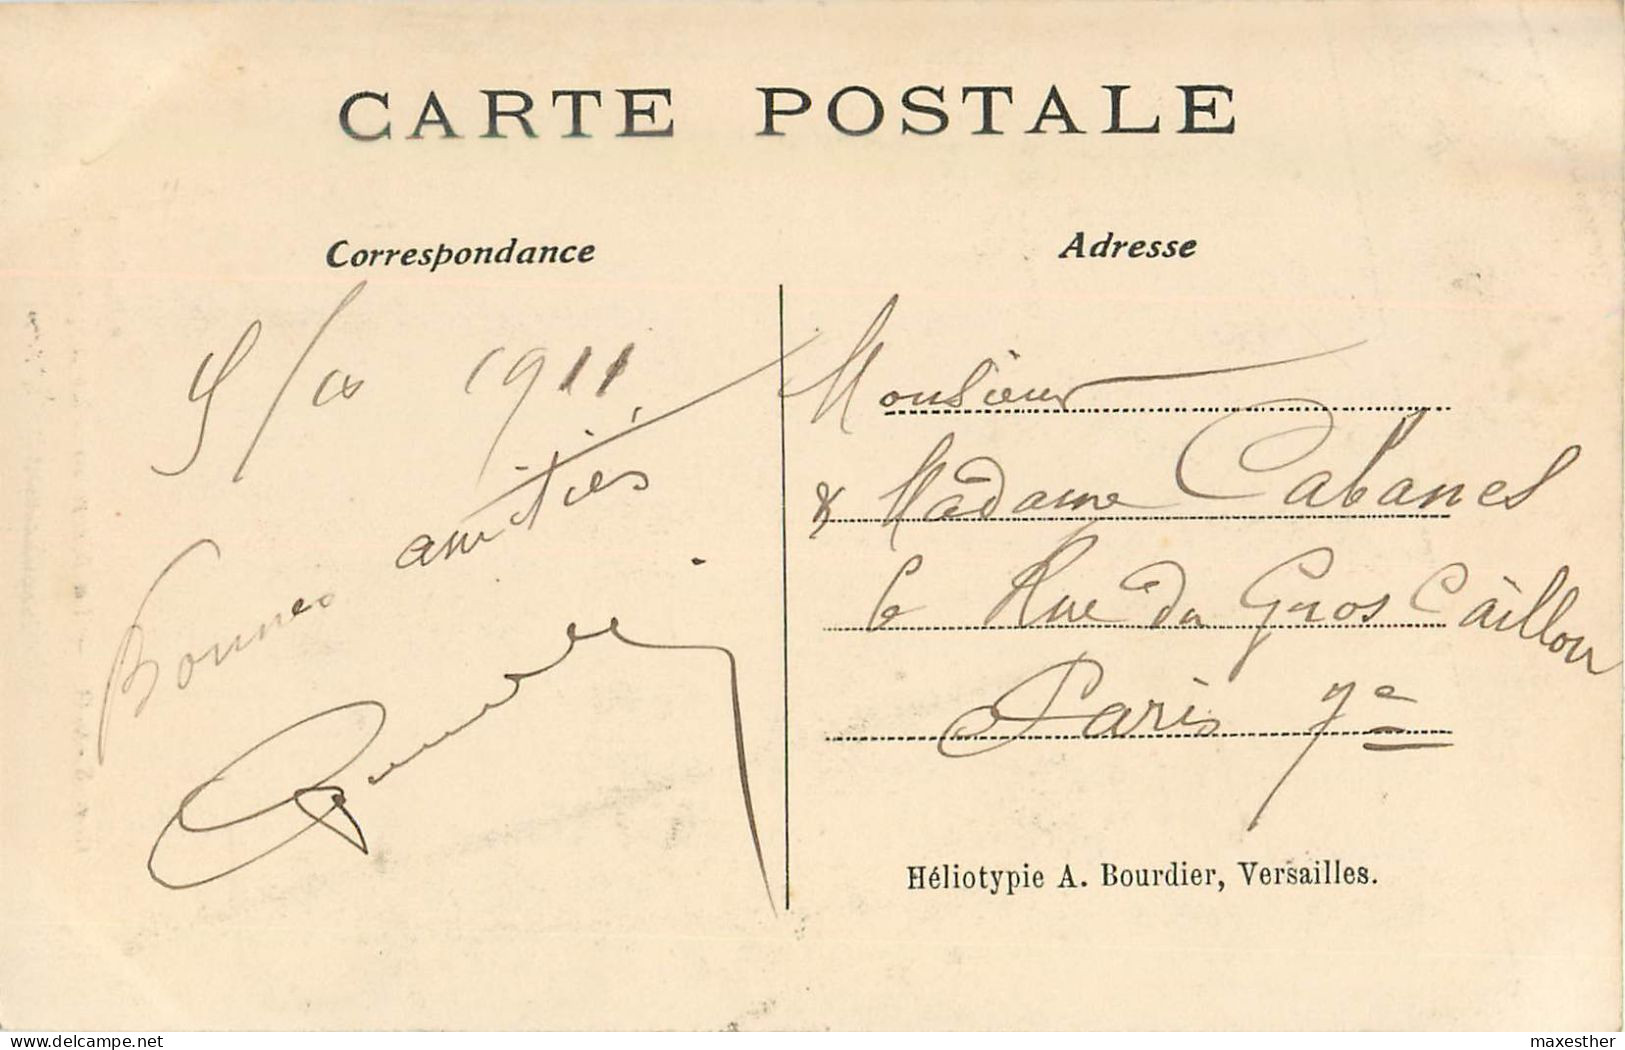 CARTE POSTALE
Correspondance
Adresse
5/ix 1911
Bonnes amitiés
Monsieur
& Madame Cabanes
6 Rue du Gros Caillou
Paris 7e
Héliotypie A. Bourdier, Versailles.
delcampe.net
maxesther